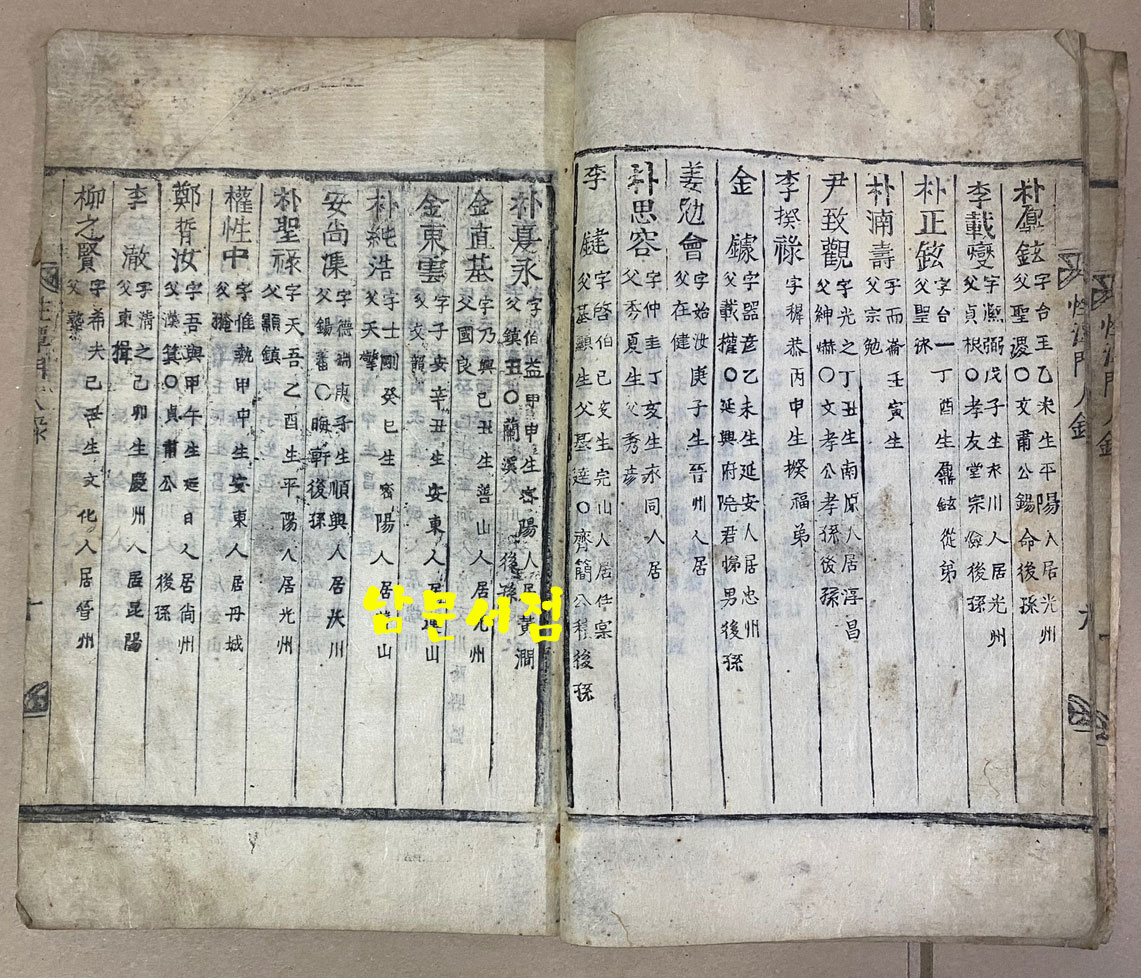 性潭門人錄 九
朴鼎鉉 字台玉乙未生平陽人居光州
父聖源〇文肅公錫命後孫
李載燮 字熙弼戊子生永川人居光州
父貞根〇孝友堂宗儉後孫
朴正鉉 字台一丁酉生鼎鉉從弟
父聖休
朴湳壽 字而崙壬寅生
父宗勉
尹致觀 字光之丁丑生南原人居淳昌
父紳爀〇文孝公孝孫後孫
李揆祿 字穉恭丙申生揆福弟
金鐻 字器彦乙未生延安人居忠州
父載權〇延興府院君悌男後孫
姜勉會 字始汝庚子生晉州人居
父在健
朴思容 字仲圭丁亥生永同人居
父秀夏生父秀彦
李鍵 字啓伯己亥生完山人居任寔
父基顯生父基達〇齊簡公稷後孫
朴夏永 字伯益甲申生密陽人居黃澗
父鎭丑〇蘭溪後孫
金直基 字乃興己丑生善山人居光州
父國良
金東雲 字子安辛丑生安東人居連山
父文韻
朴純浩 字士剛癸巳生密陽人居 山
父天擎
安尙集 字德瑞庚子生順興人居 川
父錫蕃〇晦軒後孫
朴聖祿 字天吾乙酉生平陽人居光州
父顯鎭
權性中 字惟執甲申生安東人居丹城
鄭胥汝 字吾與甲午生延日人居尙州
父漢箕〇貞肅公後孫
李澈 字淸之己卯生慶州人居昆陽
父東揖
柳之賢 字希夫己丑生文化人居晉州
父
性潭門人錄 十
남문서점